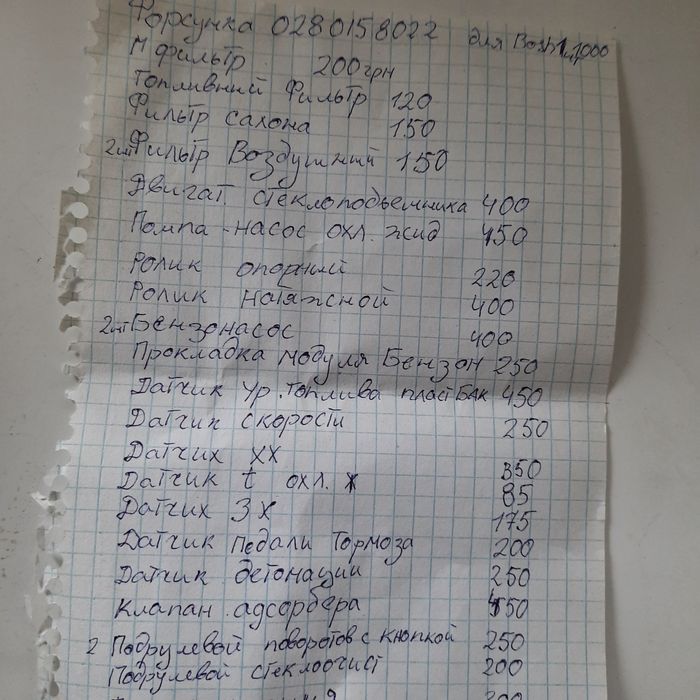 Форсунка 0280158022 для
М фильтр 200грн
Топливний Фильтр 120
Фильтр салона 150
2шт Фильтр Воздушний 150
Двигат. стеклоподьемника 400
Помпа-насос охл. жид 450
Ролик опорний 220
Ролик натяжной 400
2шт Бензонасос 400
Прокладка модуля Бензон 250
Датчик ур. топлива пласт Бак 450
Датчик скорости 250
Датчик ХХ 350
Датчик t охл. ж 85
Датчик ЗХ 175
Датчик педали тормоза 200
Датчик детонации 250
Клапан адсорбера 450
2 Подрулевой поворотов с кнопкой 250
Подрулевой стеклоочист 200